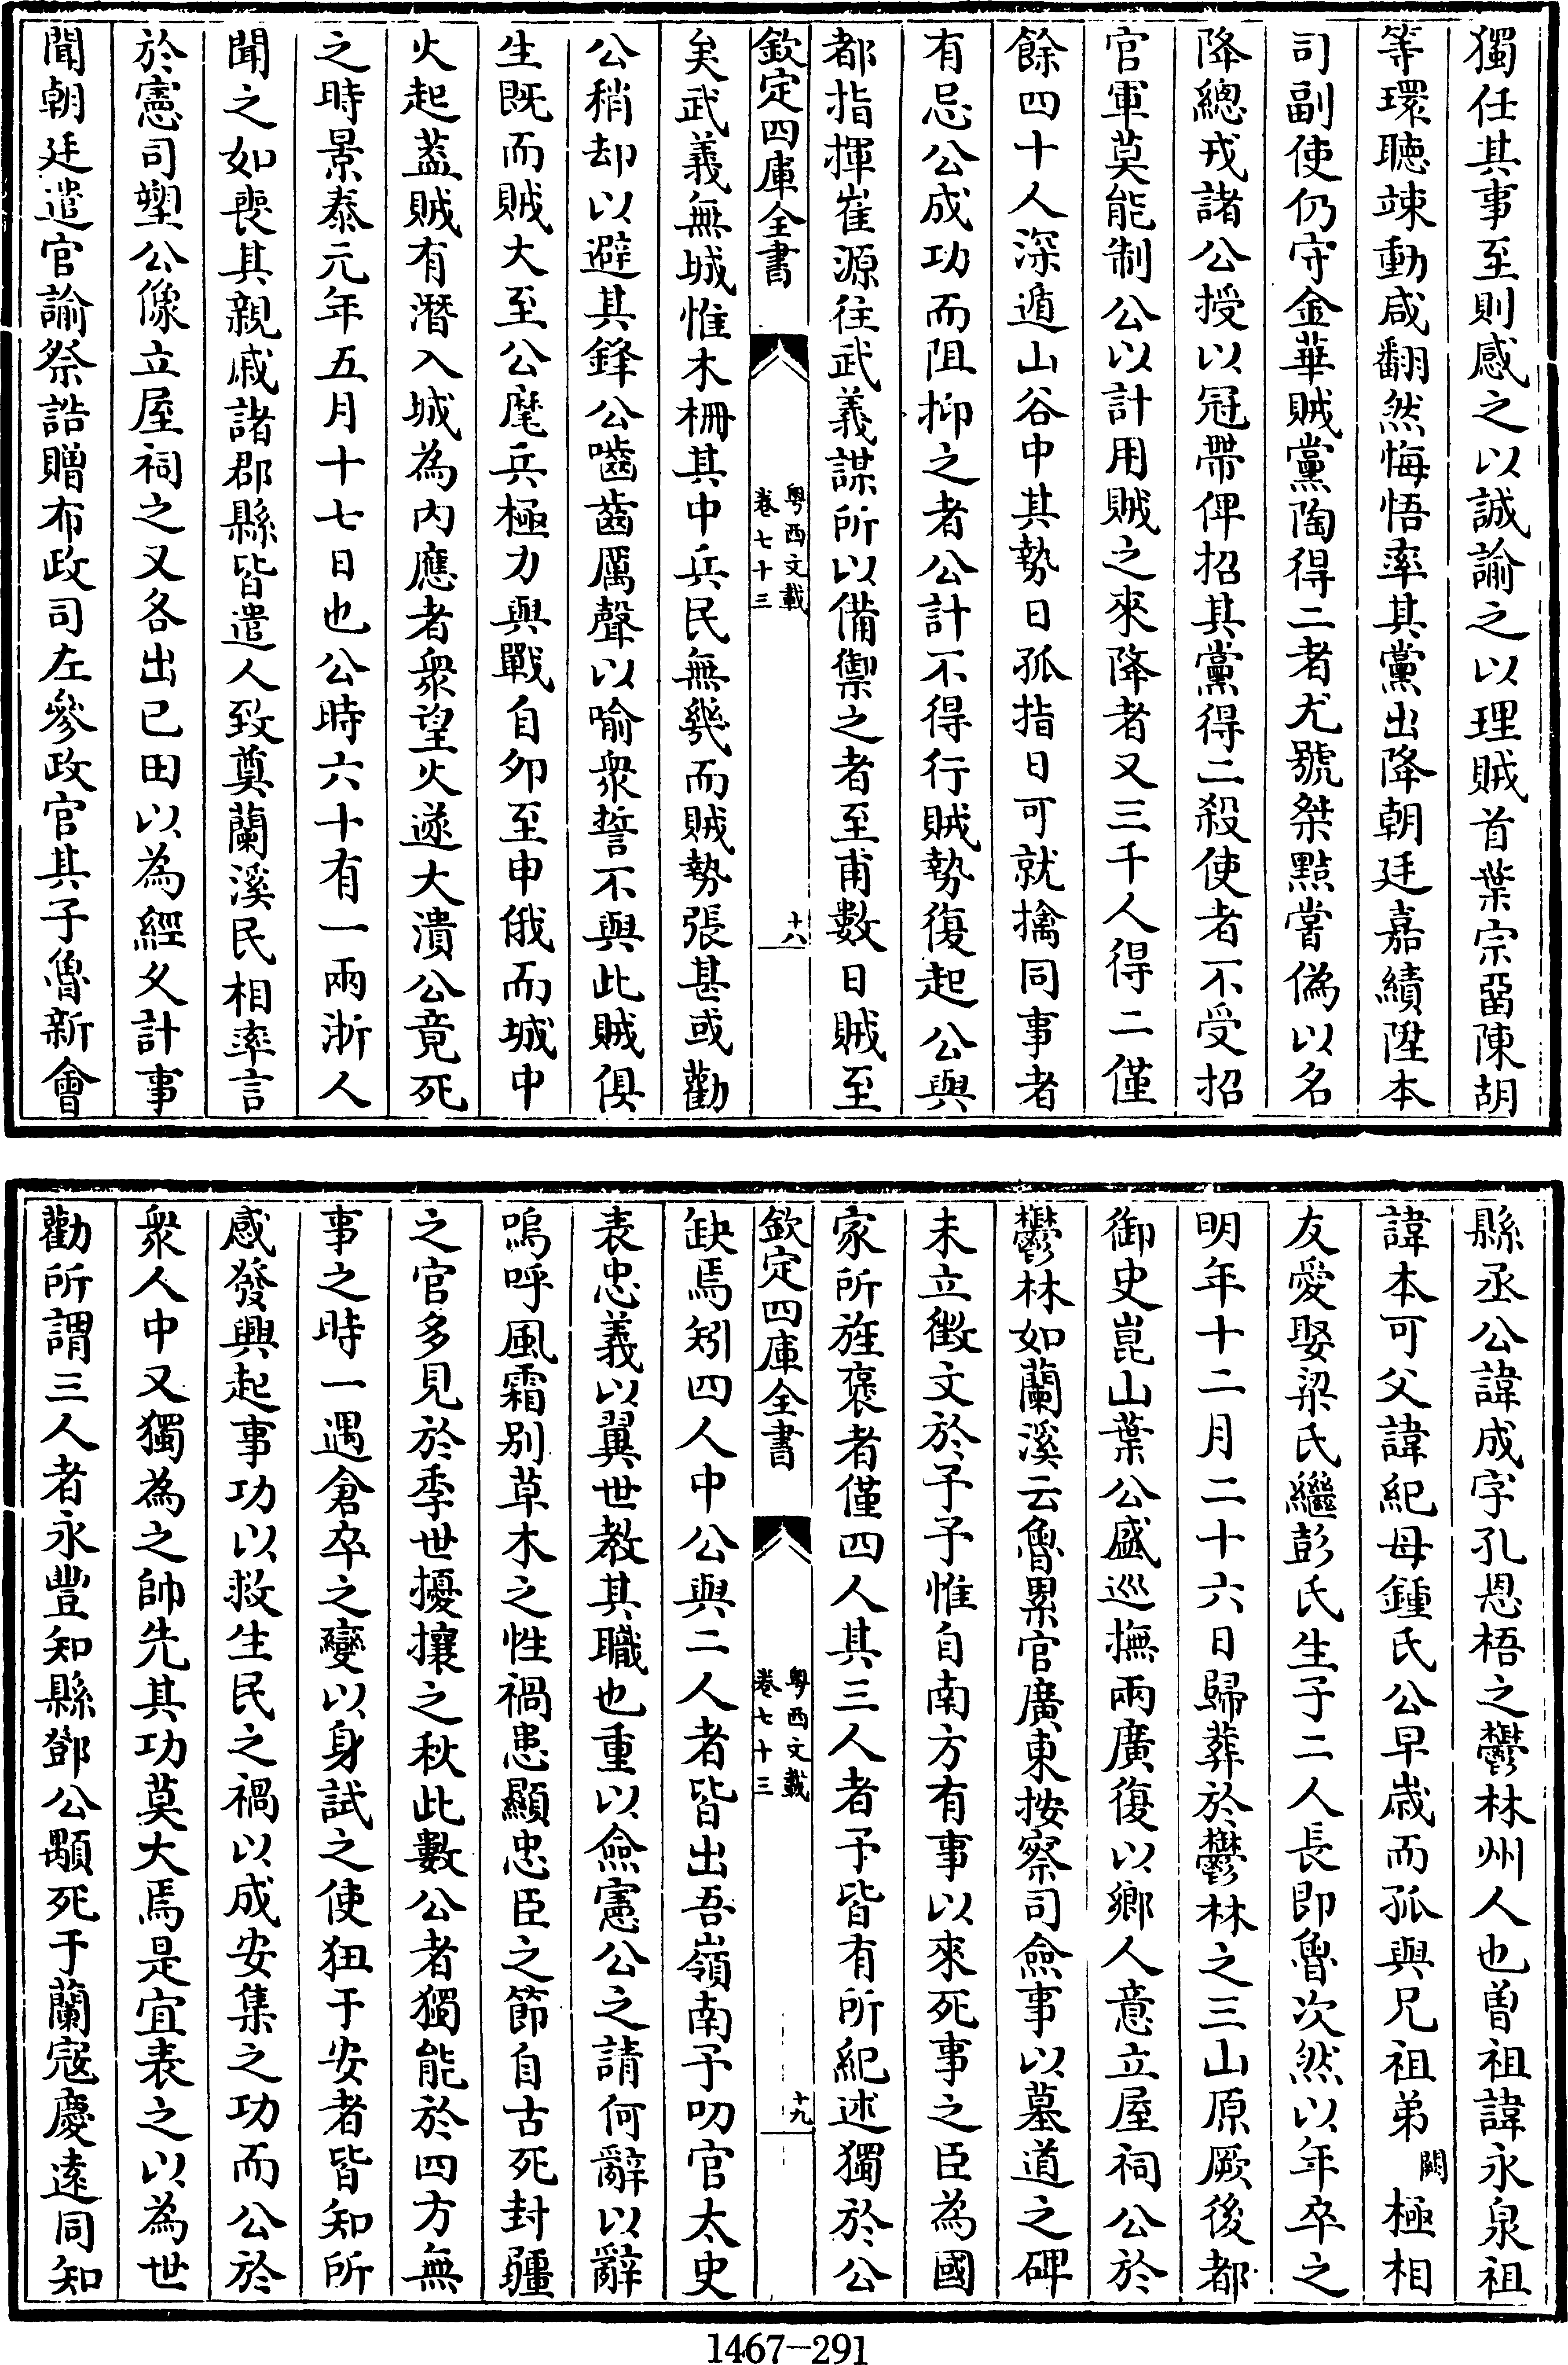 獨任其事至則感之以誠諭之以理賊首葉宗畱陳胡
等環聽竦動咸翻然悔悟率其黨出降朝廷嘉績陞本
司副使仍守金華賊黨陶得二者尤號桀黠嘗偽以名
降總戎諸公授以冠帶俾招其黨得二殺使者不受招
官軍莫能制公以計用賊之來降者又三千人得二僅
餘四十人深遁山谷中其勢日孤指日可就擒同事者
有忌公成功而阻抑之者公計不得行賊勢復起公與
都指揮崔源往武義謀所以備禦之者至甫數日賊至
欽定四庫全書
粵西文載
卷七十三
十八
矣武義無城惟木柵其中兵民無幾而賊勢張甚或勸
公稍却以避其鋒公嚙齒厲聲以喻衆誓不與此賊俱
生既而賊大至公麾兵極力與戰自卯至申俄而城中
火起葢賊有潛入城為内應者衆望火遂大潰公竟死
之時景泰元年五月十七日也公時六十有一兩浙人
聞之如喪其親戚諸郡縣皆遣人致奠蘭溪民相率言
於憲司塑公像立屋祠之又各出已田以為經久計事
聞朝廷遣官諭祭誥贈布政司左參政官其子魯新會
縣丞公諱成字孔恩梧之鬱林州人也曽祖諱永泉祖
諱本可父諱紀母鍾氏公早嵗而孤與兄祖弟闕極相
友愛娶梁氏繼彭氏生子二人長即魯次然以年卒之
明年十二月二十六日歸葬於鬱林之三山原厥後都
御史崑山葉公盛巡撫兩廣復以鄉人意立屋祠公於
鬱林如蘭溪云魯累官廣東按察司僉事以墓道之碑
未立徵文於予予惟自南方有事以來死事之臣為國
家所旌褒者僅四人其三人者予皆有所紀述獨於公
欽定四庫全書
粵西文載
卷七十三
十九
缺焉矧四人中公與二人者皆出吾嶺南予叨官太史
表忠義以翼世教其職也重以僉憲公之請何辭以辭
嗚呼風霜别草木之性禍患顯忠臣之節自古死封疆
之官多見於季世擾攘之秋此數公者獨能於四方無
事之時一遇倉卒之變以身試之使狃于安者皆知所
感發興起事功以救生民之禍以成安集之功而公於
衆人中又獨為之帥先其功莫大焉是宜表之以為世
勸所謂三人者永豐知縣鄧公顒死于蘭宼慶遠同知
1467-291